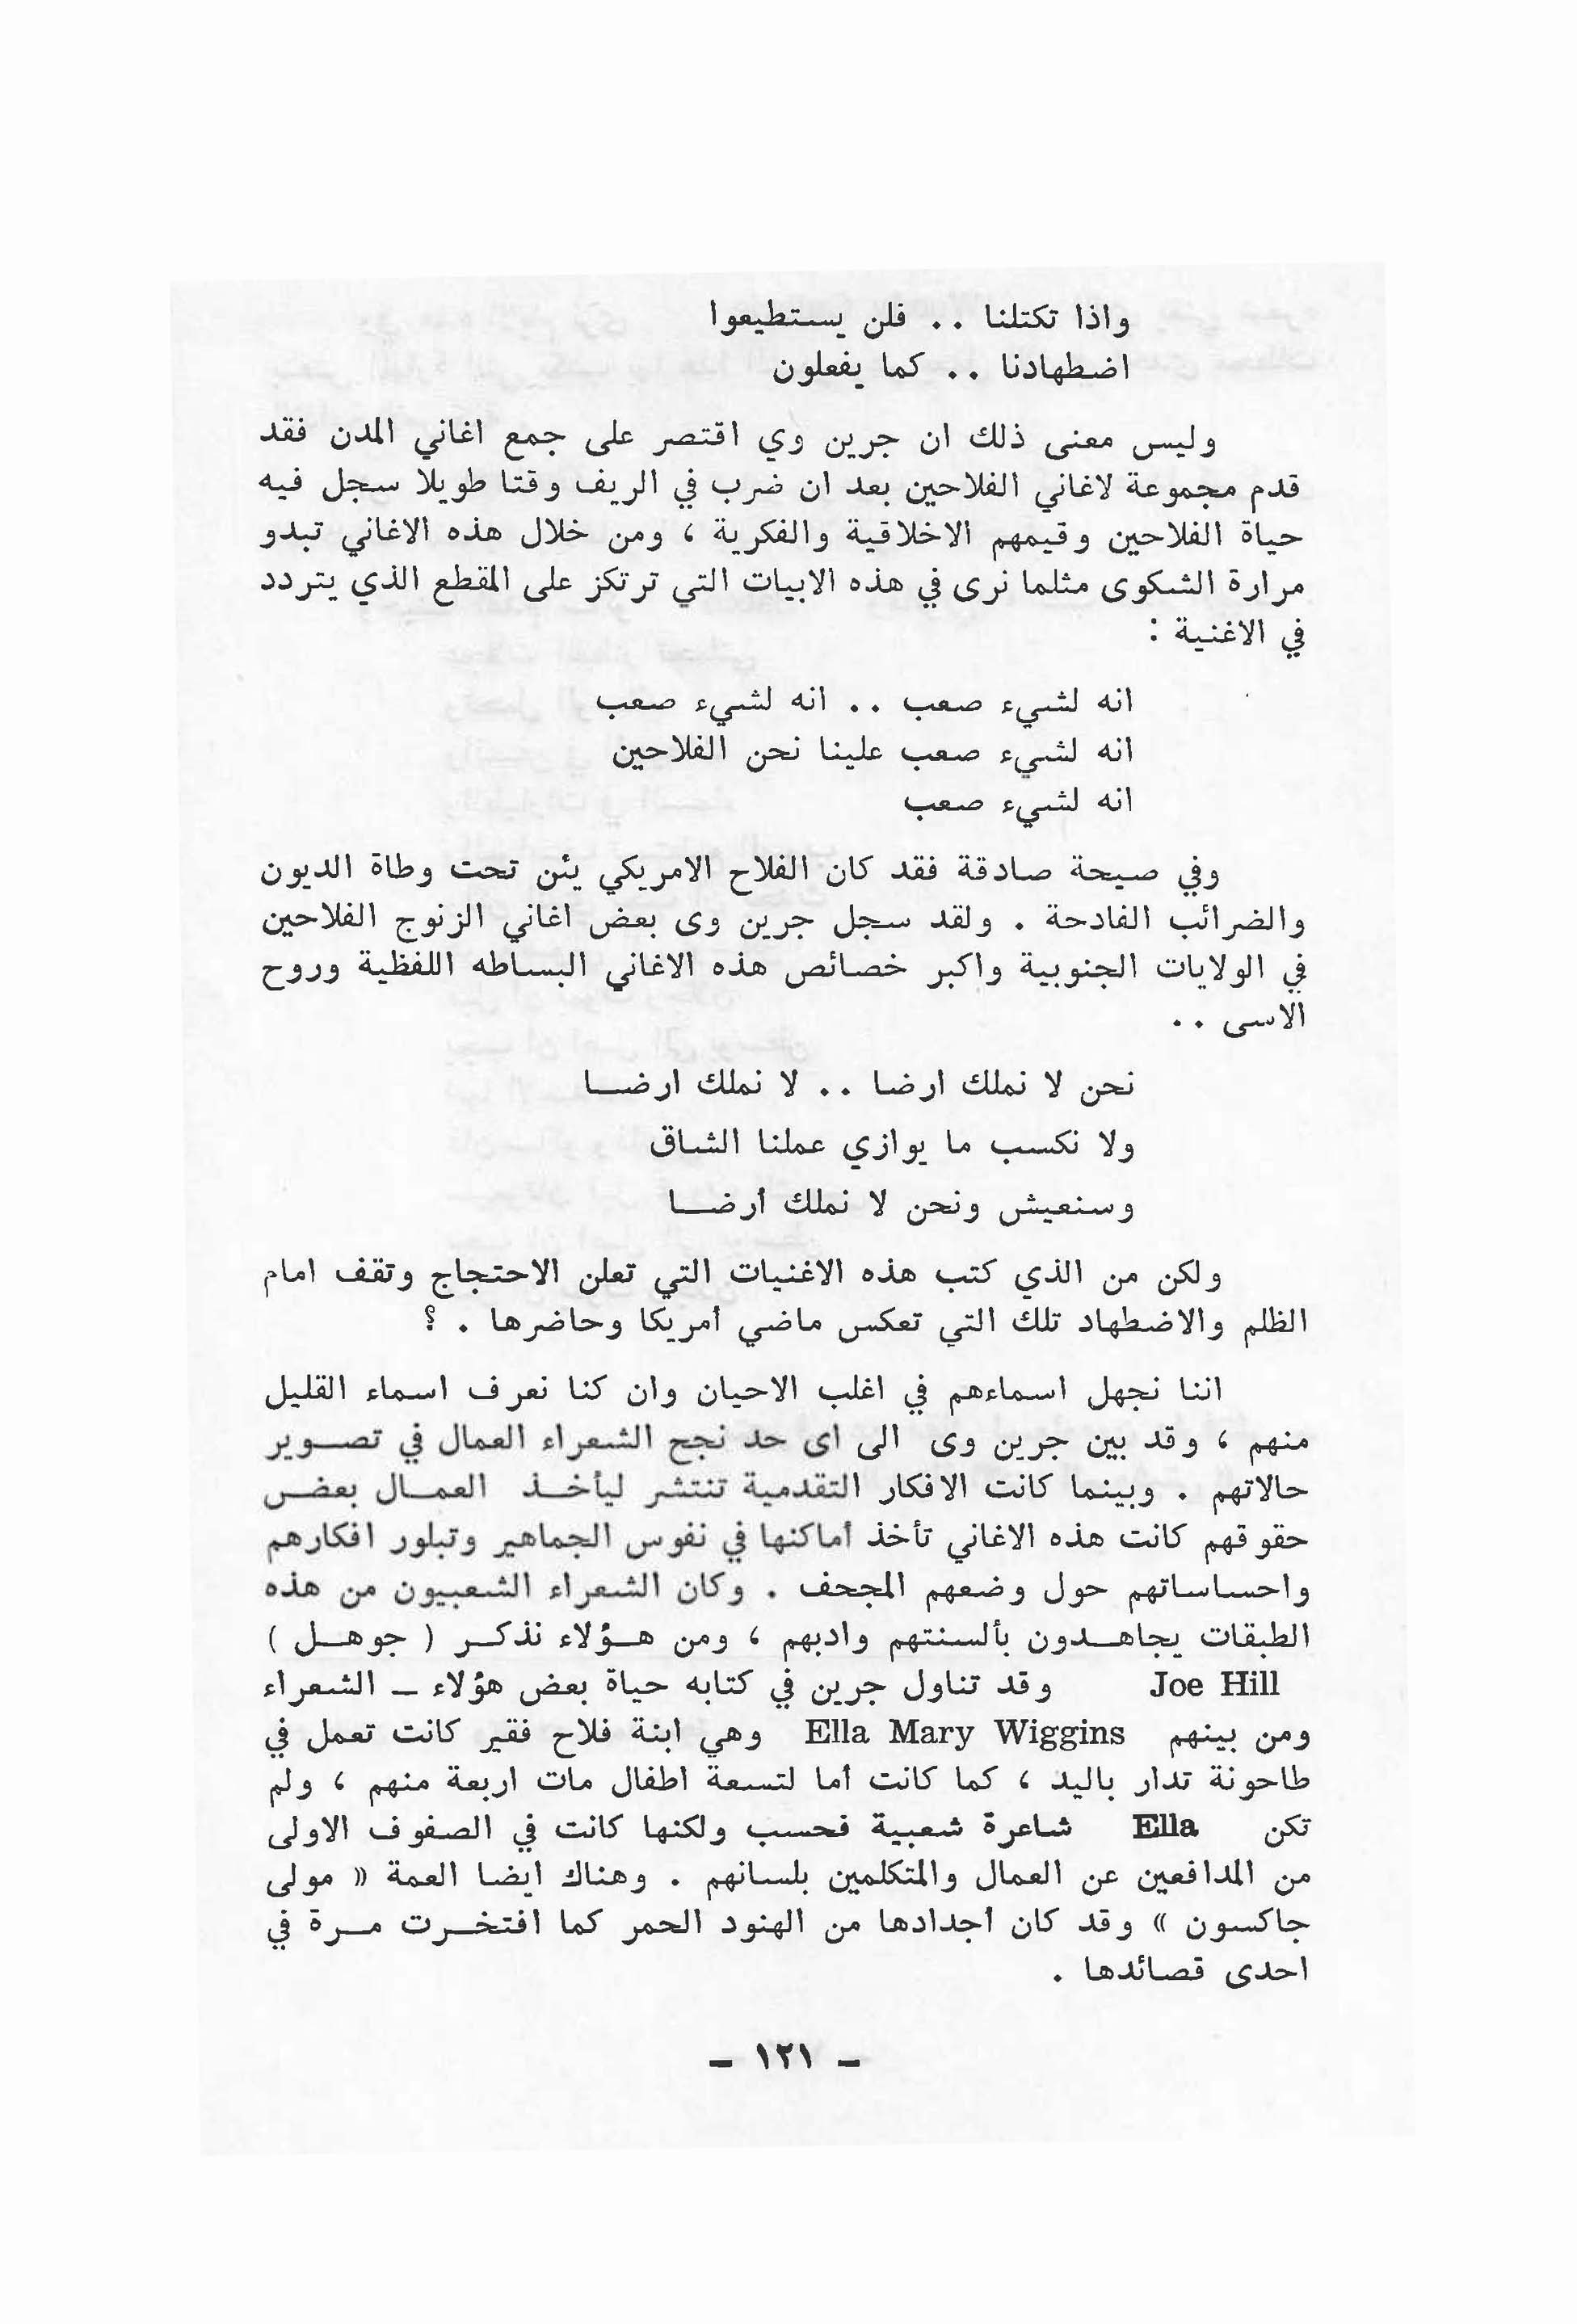 واذا تكتلنا .. فلن يستطيعوا
اضطهادنا .. كما يفعلون
وليس معنى ذلك ان جرين وي اقتصر على جمع اغاني المدن فقد
قدم مجموعة لاغاني الفلاحين بعد ان ضرب في الريف وقتا طويلا سجل فيه
حياة الفلاحين وقيمهم الاخلاقية والفكرية ، ومن خلال هذه الاغاني تبدو
مرارة الشكوى مثلما نرى في هذه الابيات التي ترتكز على المقطع الذي يتردد
في الاغنية :
انه لشيء صعب .. انه لشيء صعب
انه لشيء صعب علينا نحن الفلاحين
انه لشيء صعب
وفي صيحة صادقة فقد كان الفلاح الامريكي يئن تحت وطاة الديون
والضرائب الفادحة . ولقد سجل جرين وى بعض اغاني الزنوج الفلاحين
في الولايات الجنوبية واكبر خصائص هذه الاغاني البساطه اللفظية وروح
الاسى ..
نحن لا نملك ارضا .. لا نملك ارضــا
ولا نكسب ما يوازي عملنا الشاق
وسنعيش ونحن لا نملك أرضــا
ولكن من الذي كتب هذه الاغنيات التي تعلن الاحتجاج وتقف امام
الظلم والاضطهاد تلك التي تعكس ماضي أمريكا وحاضرها . ؟
اننا نجهل اسماءهم في اغلب الاحيان وان كنا نعرف اسماء القليل
منهم ، وقد بين جرين وى الى اى حد نجح الشعراء العمال في تصــوير
حالاتهم . وبينما كانت الافكار التقدمية تنتشر ليأخــذ العمــال بعض
حقوقهم كانت هذه الاغاني تأخذ أماكنها في نفوس الجماهير وتبلور افكارهم
واحساساتهم حول وضعهم المجحف . وكان الشعراء الشعبيون من هذه
الطبقات يجاهــدون بألسنتهم وادبهم ، ومن هــؤلاء نذكــر ( جوهــل )
Joe Hill وقد تناول جرين في كتابه حياة بعض هؤلاء – الشعراء
ومن بينهم Ella Mary Wiggins وهي ابنة فلاح فقير كانت تعمل في
طاحونة تدار باليد ، كما كانت أما لتسعة اطفال مات اربعة منهم ، ولم
تكن Ella شاعرة شعبية فحسب ولكنها كانت في الصفوف الاولى
من المدافعين عن العمال والمتكلمين بلسانهم . وهناك ايضا العمة « مولى
جاكسون » وقد كان أجدادها من الهنود الحمر كما افتخــرت مــرة في
احدى قصائدها .
– ١٢١ –